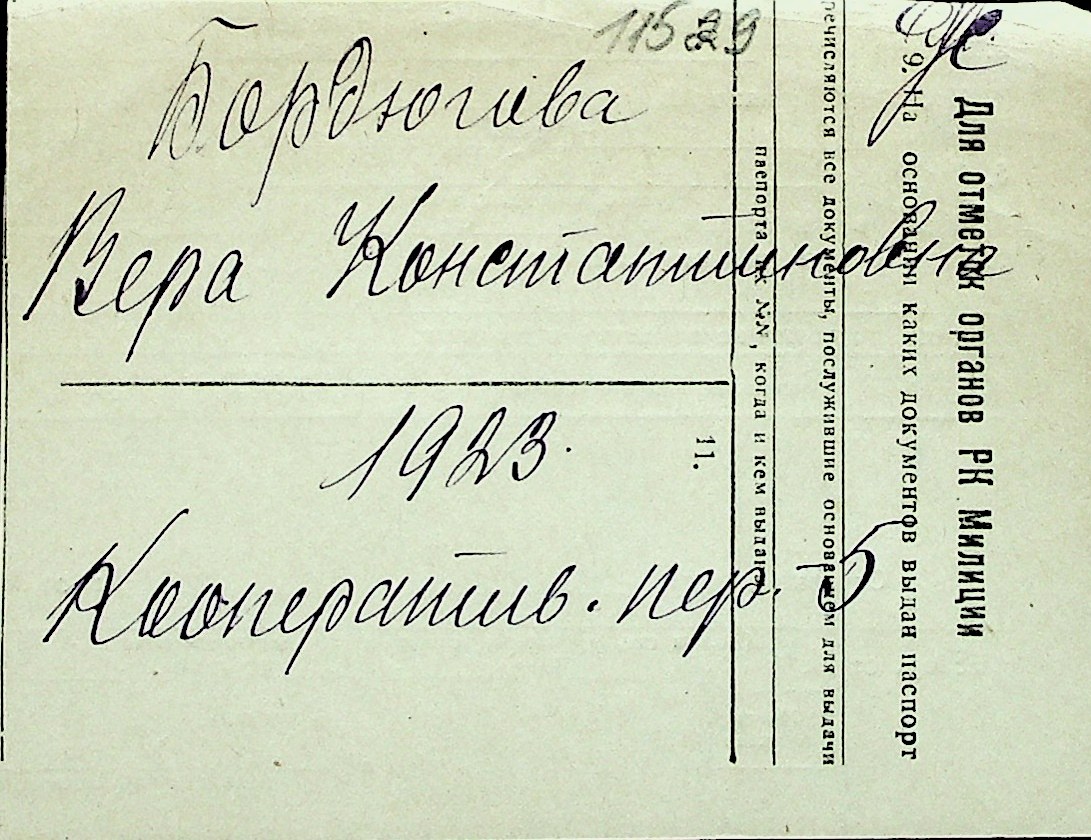 11529
Бордюгова
Вера Константиновна
1923.
Кооператив. пер. 5
Для отметок органов РК Милиции
9. На основании каких документов выдан паспорт
речисляются все документы, послужившие основанием для выдачи
паспорта их №№, когда и кем выданы
11.